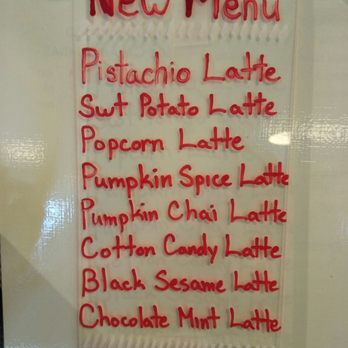 New Menu
Pistachio Latte
Swt Potato Latte
Popcorn Latte
Pumpkin Spice Latte
Pumpkin Chai Latte
Cotton Candy Latte
Black Sesame Latte
Chocolate Mint Latte